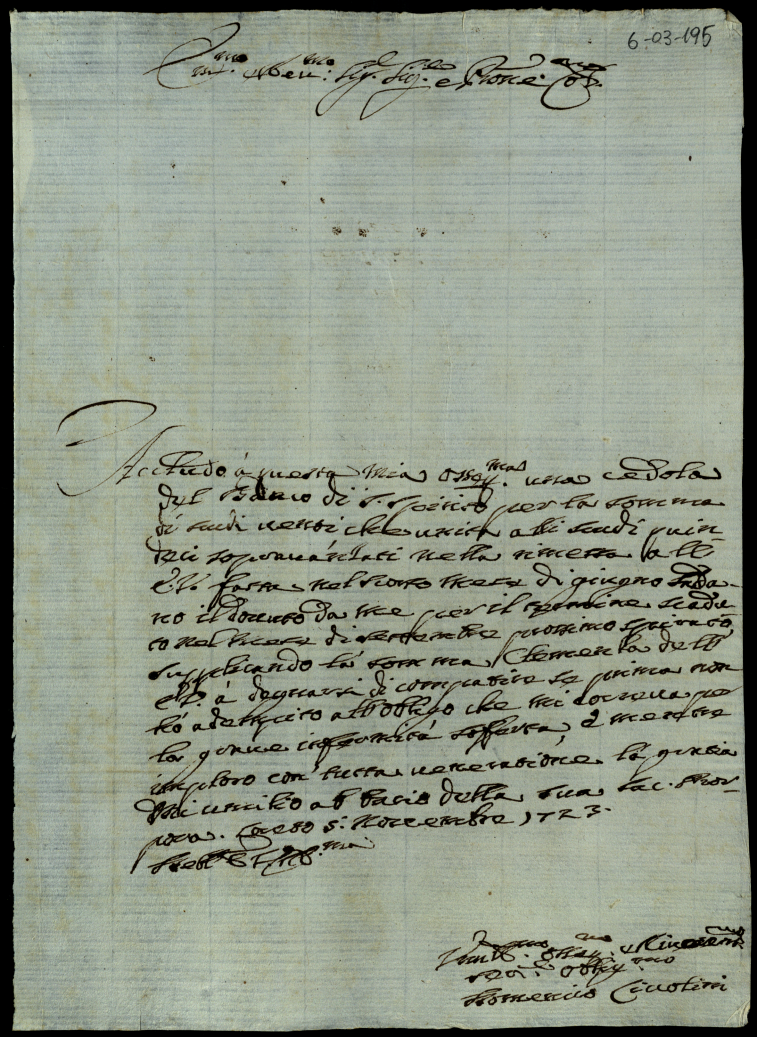 6-03-195
Em.mo e Rev.mo Sig.r Sig.re e Prone Col.mo
Accludo à questa mia osseq.ma una cedola
del Banco di S. Spirito per la somma
di scudi venti che unita alli scudi quin-
deci sopravanzati nella rimessa all'
E.V. fatta nel mese di giugno salda-
no il dovuto da me per il termine scadu-
to nel mese di settembre prossimo spirato
supplicando la somma Clemenza dell'
E.V. à degnarsi di compatire se prima non
hò adempito all'obligo che mi correva per
la grave infermità sofferta, e mentre
imploro con tutta venerazione la grazia
M'inchino al bacio della sua sac. Por-
pora. 5: Novembre 1723.
Dell'E.V. R.ma
Umil.mo osseq.mo Riverent.mo
ser.re oblig.mo
Domenico Civolini